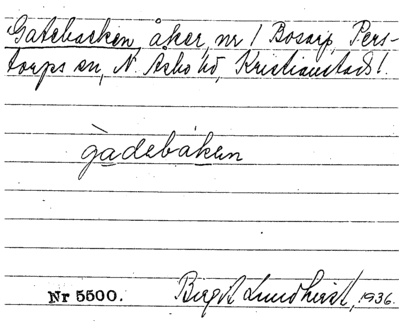 Gatebacken, åker, nr 1 Bosarp, Pers-
torps sn, N. Åsbo hd, Kristianstads l.
gàdebáken
Nr 5500. Birgit Lundkvist, 1936.